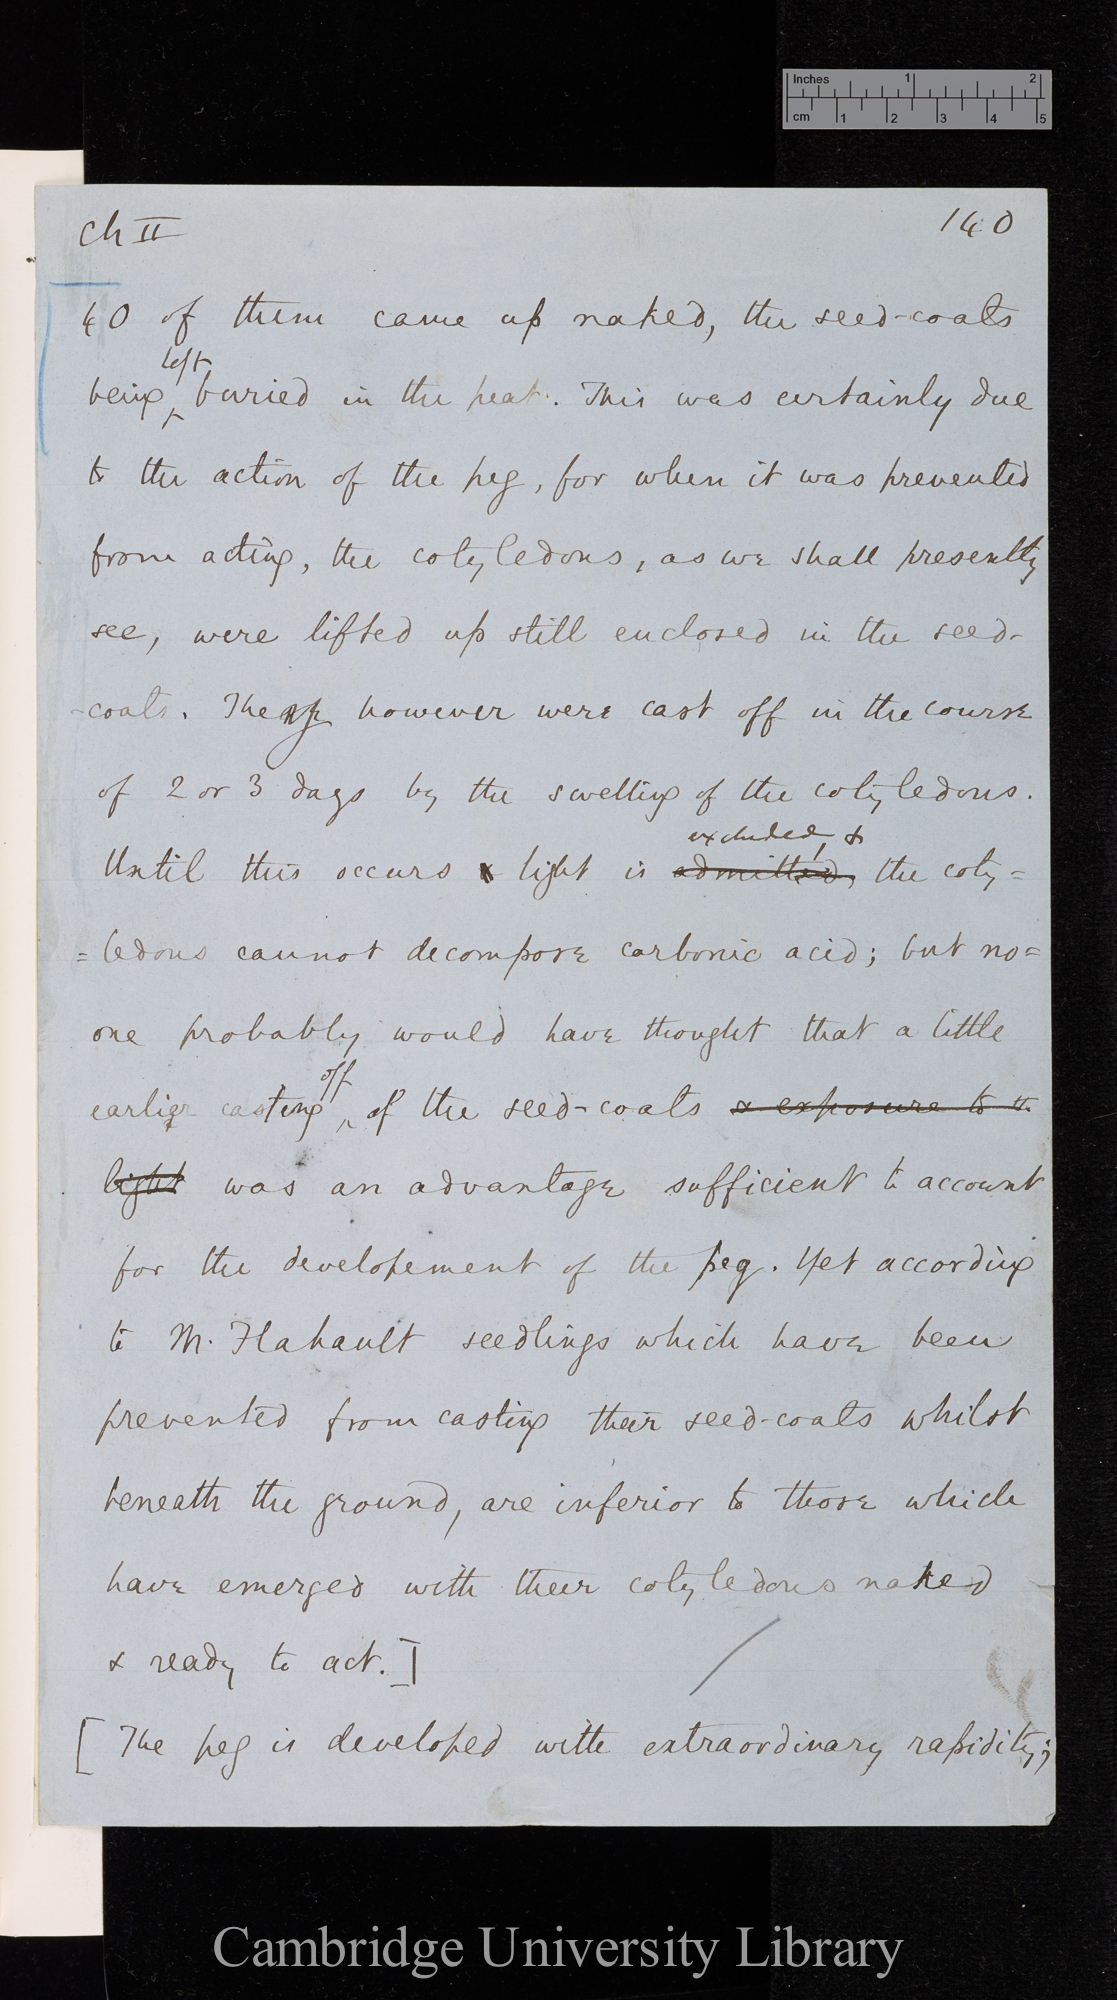 Inches 1 2
cm 1 2 3 4 5
Ch II 140
40 of them came up naked, the seed-coats
left
being buried in the peat. This was certainly due
to the action of the peg, for when it was prevented
from acting, the cotyledons, as we shall presently
see, were lifted up still enclosed in the seed-
-coats. They however were cast off in the course
of 2 or 3 days by the swelling of the cotyledons.
excluded, &
Until this occurs light is admitted, the coty=
=ledons cannot decompose carbonic acid; but no=
one probably would have thought that a little
off
earlier casting of the seed-coats & exposure to the
light was an advantage sufficient to account
for the developement of the peg. Yet according
to M. Flahault seedlings which have been
prevented from casting their seed-coats whilst
beneath the ground, are inferior to those which
have emerged with their cotyledons naked
& ready to act.]
[The peg is developed with extraordinary rapidity;
Cambridge University Library